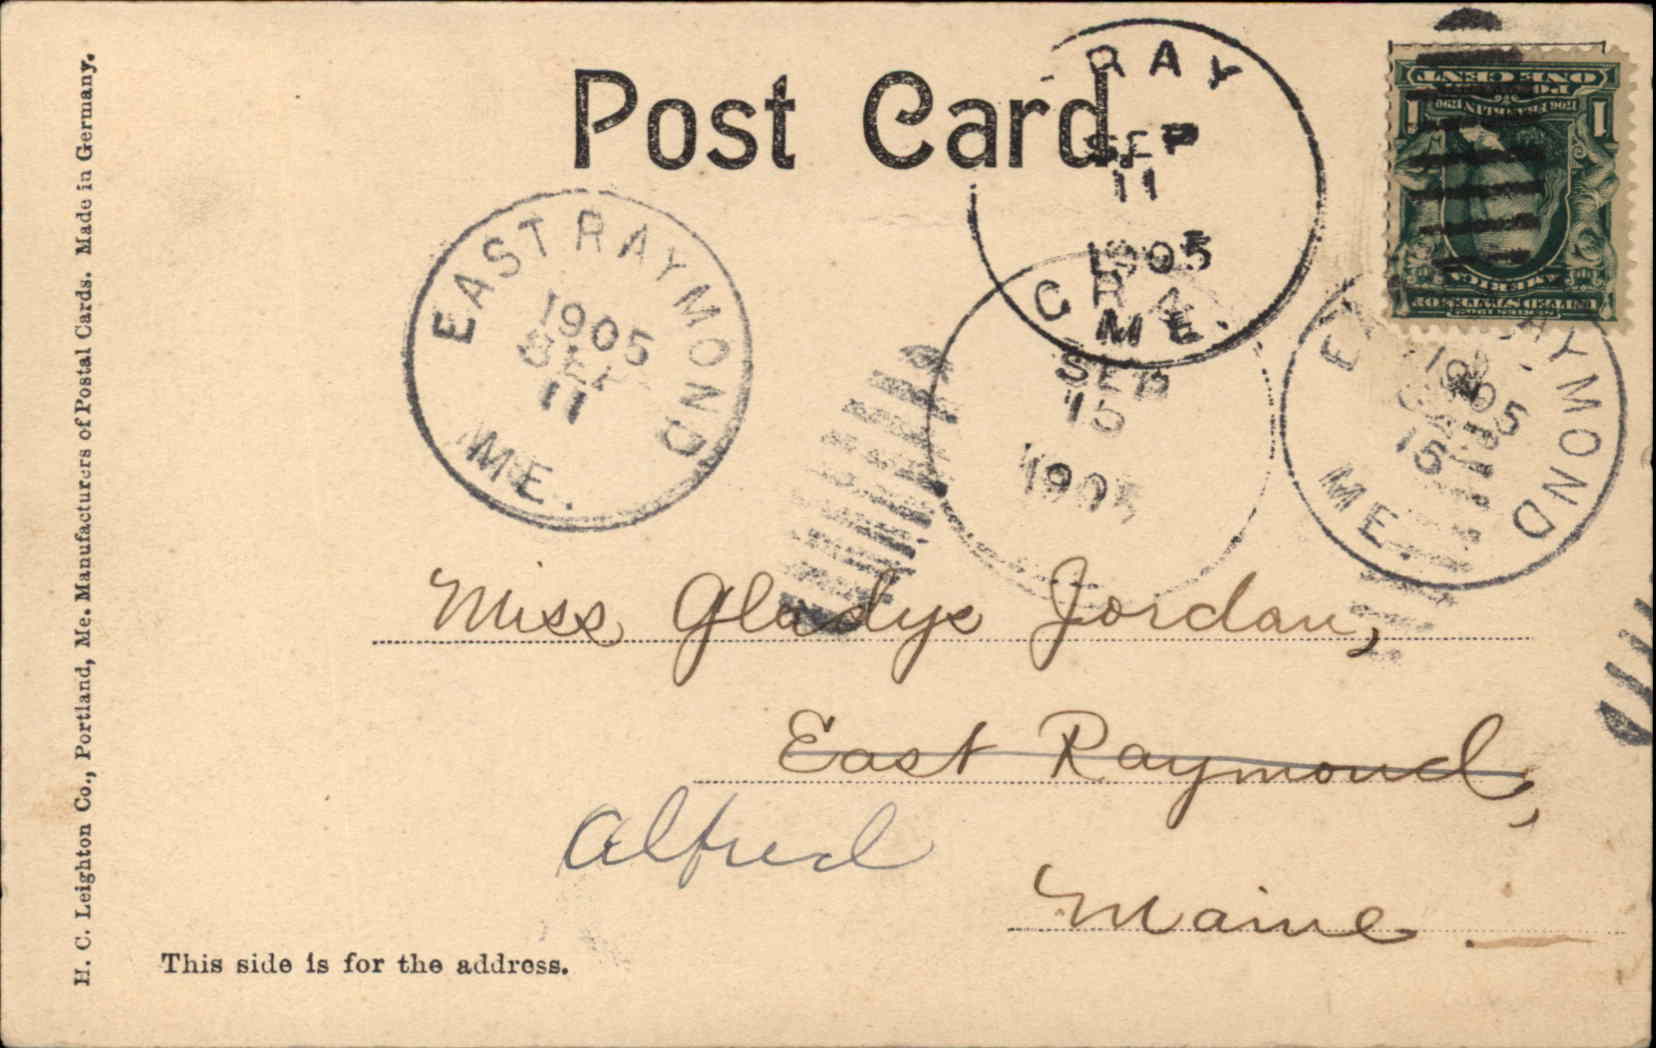 Post Card.
H. C. Leighton Co., Portland, Me. Manufacturers of Postal Cards. Made in Germany.
GRAY
SEP
11
1905
ME.
EAST RAYMOND
1905
SEP
11
ME.
GRA
SEP
15
1905
EAST RAYMOND
1905
15
ME.
ONE CENT
1 1
Miss Gladys Jordan,
East Raymond,
Alfred
Maine.
This side is for the address.